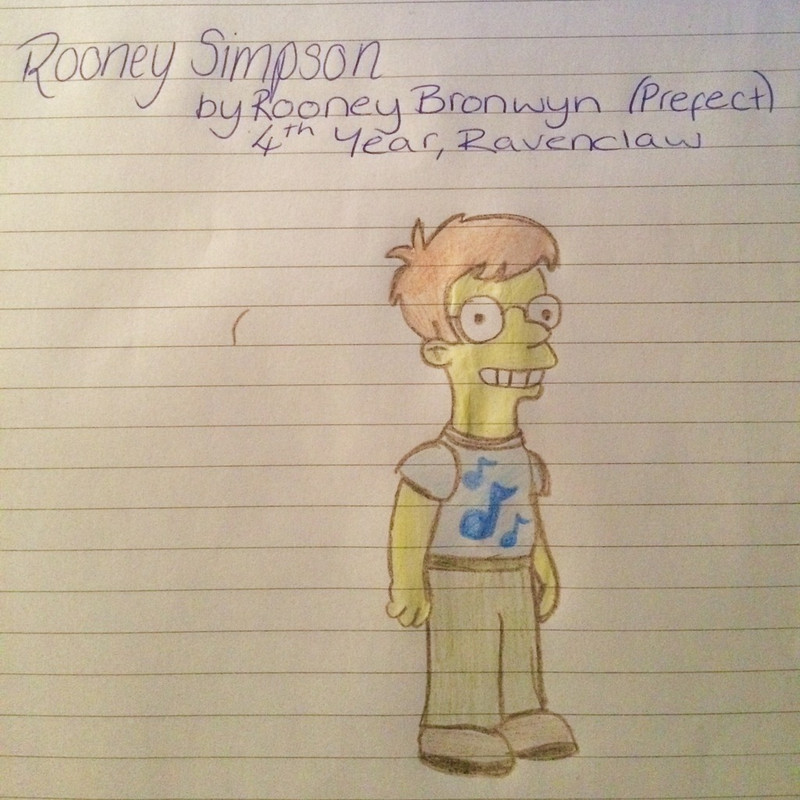 Rooney Simpson
by Rooney Bronwyn (Prefect)
4th Year, Ravenclaw